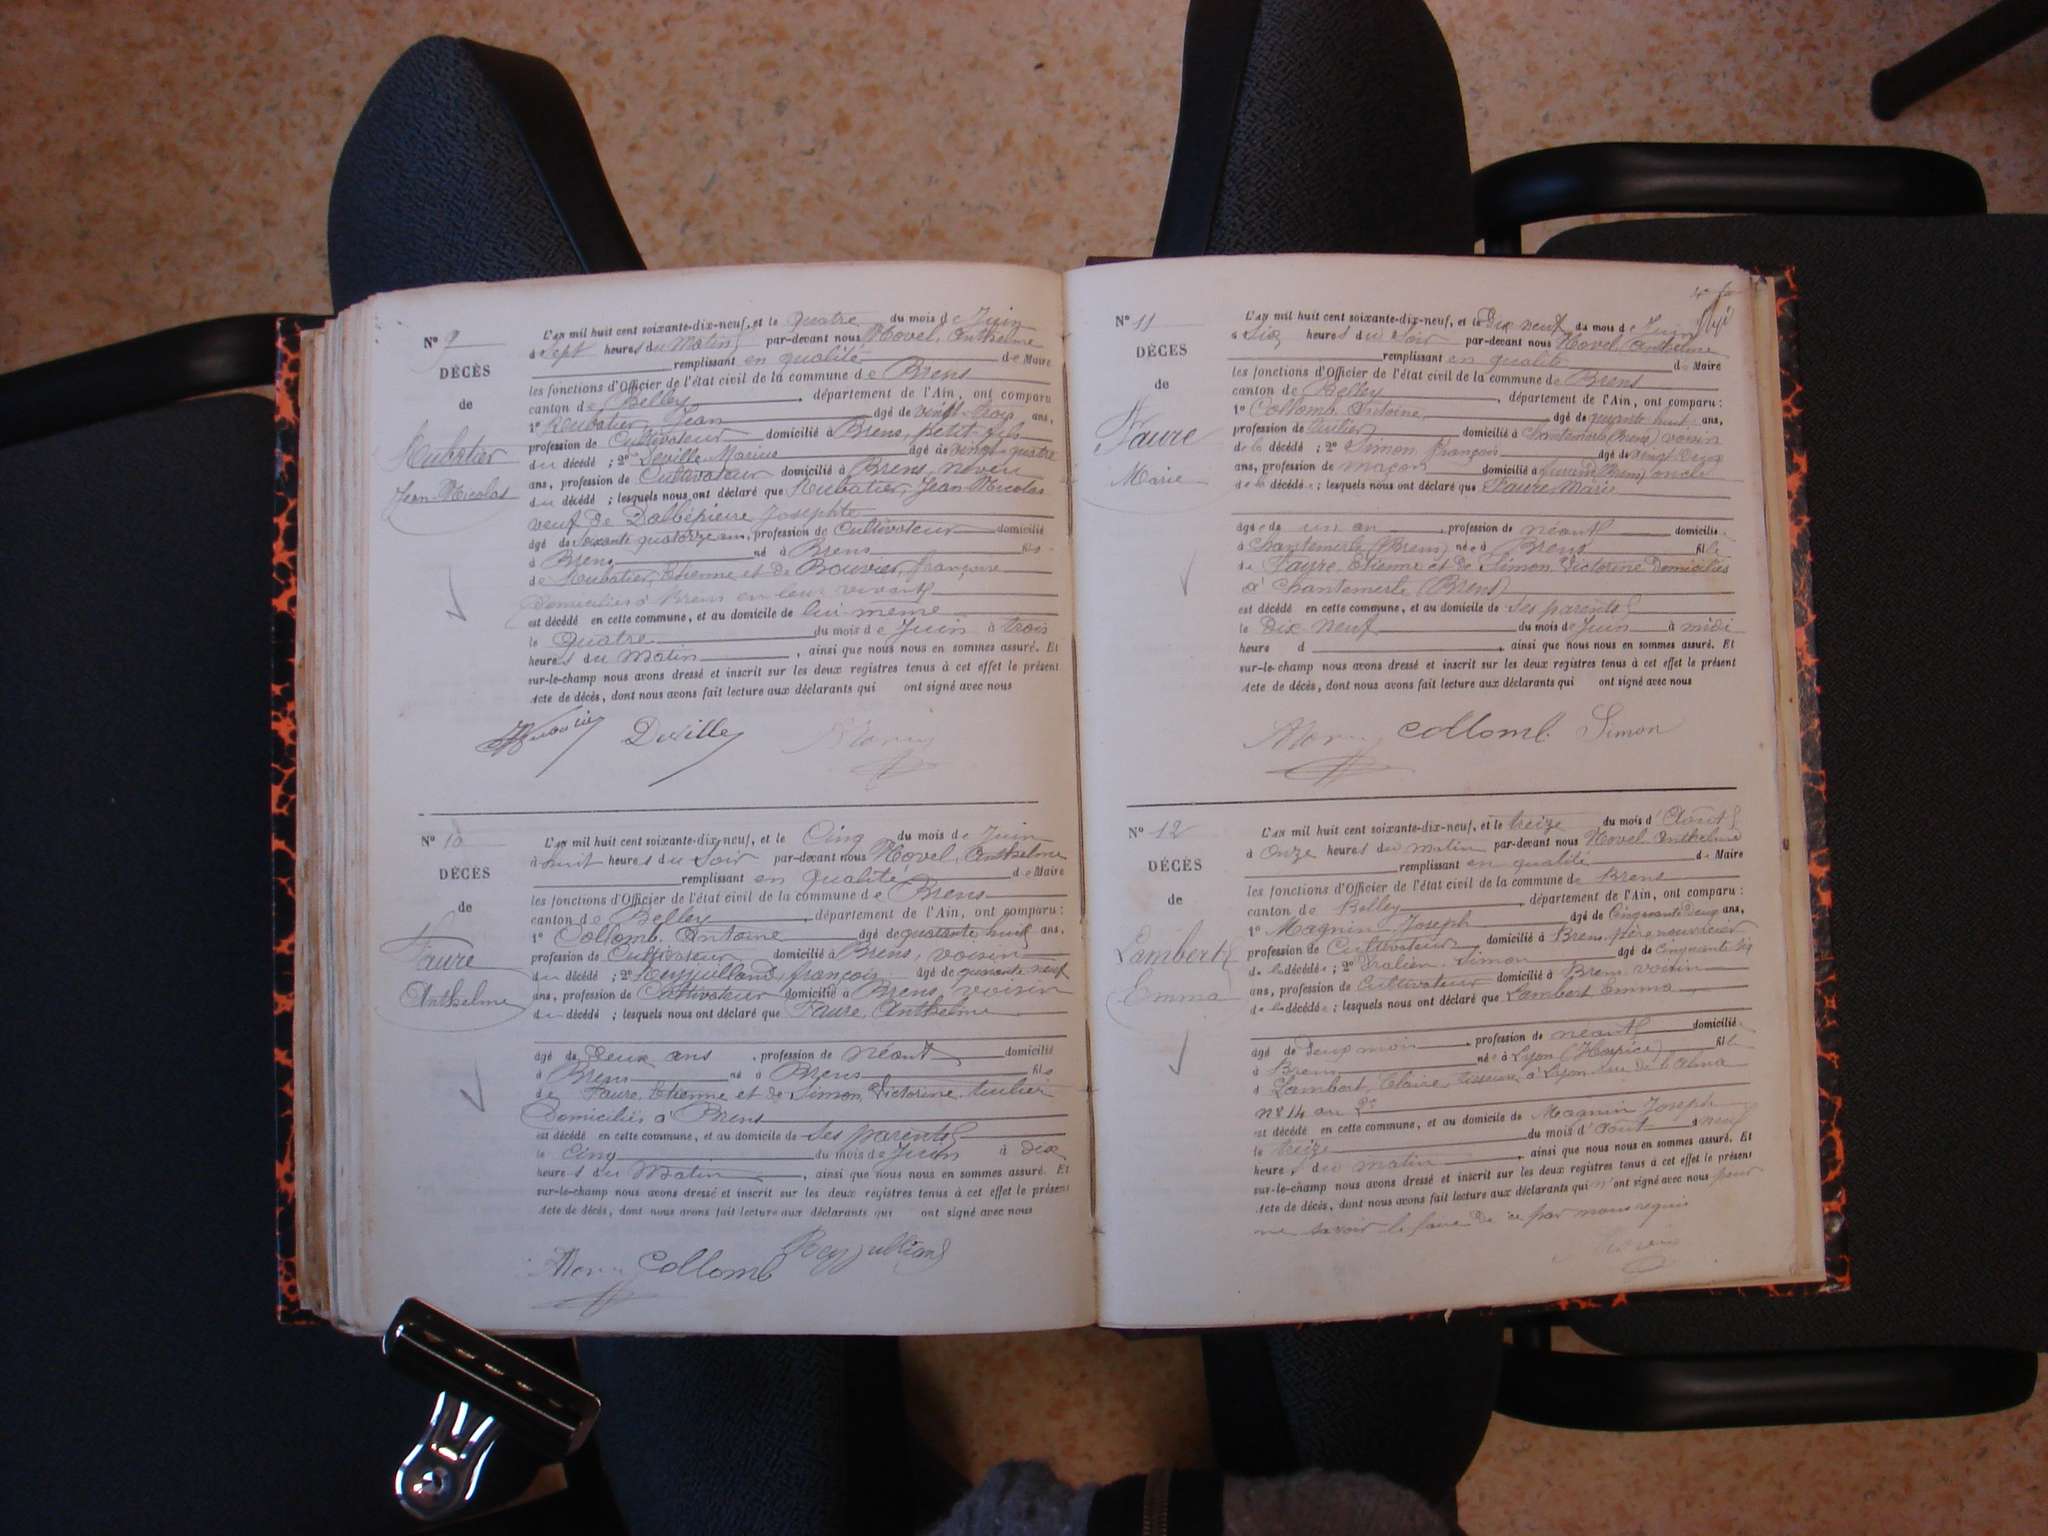 N° 9
DÉCÈS
de
Rubatier
Jean-Nicolas
L'an mil huit cent soixante-dix-neuf, et le Quatre du mois de Juin
à Sept heures du Matin par-devant nous Hovel, Anthelme
remplissant en qualité de Maire
les fonctions d'Officier de l'état civil de la commune de Brens
canton de Belley, département de l'Ain, ont comparu
1° Rubatier, Jean âgé de vingt-trois ans,
profession de Cultivateur domicilié à Brens, petit-fils
du décédé ; 2° Deville Marius âgé de vingt-quatre
ans, profession de Cultivateur domicilié à Brens, neveu
du décédé ; lesquels nous ont déclaré que Rubatier, Jean-Nicolas
veuf de Dalbépierre Josephte
âgé de soixante quatorze ans, profession de Cultivateur domicilié
à Brens né à Brens fils
de Rubatier, Etienne et de Bouvier, françoise
domiciliés à Brens en leur vivant
est décédé en cette commune, et au domicile de lui-même
le Quatre du mois de Juin à trois
heures du Matin, ainsi que nous nous en sommes assuré. Et
sur-le-champ nous avons dressé et inscrit sur les deux registres tenus à cet effet le présent
Acte de décès, dont nous avons fait lecture aux déclarants qui ont signé avec nous
Deville
N° 10
DÉCÈS
de
Faure
Anthelme
L'an mil huit cent soixante-dix-neuf, et le Cinq du mois de Juin
à huit heures du Soir par-devant nous Hovel, Anthelme
remplissant en qualité de Maire
les fonctions d'Officier de l'état civil de la commune de Brens
canton de Belley, département de l'Ain, ont comparu :
1° Collomb, Antoine âgé de quarante huit ans,
profession de Cultivateur domicilié à Brens, voisin
du décédé ; 2° Reyjulliand, françois âgé de quarante neuf
ans, profession de Cultivateur domicilié à Brens, voisin
du décédé ; lesquels nous ont déclaré que Faure, Anthelme
âgé de Deux ans, profession de néant domicilié
à Brens né à Brens fils
de Faure, Etienne et de Simon, Victorine, tuilier
Domiciliés à Brens
est décédé en cette commune, et au domicile de ses parents
le Cinq du mois de Juin à dix
heures du Matin, ainsi que nous nous en sommes assuré. Et
sur-le-champ nous avons dressé et inscrit sur les deux registres tenus à cet effet le présent
Acte de décès, dont nous avons fait lecture aux déclarants qui ont signé avec nous
Collomb Reyjulliand
N° 11
DÉCÈS
de
Faure
Marie
L'an mil huit cent soixante-dix-neuf, et le Dix neuf du mois de Juin
à Six heures du Soir par-devant nous Hovel, Anthelme
remplissant en qualité de Maire
les fonctions d'Officier de l'état civil de la commune de Brens
canton de Belley, département de l'Ain, ont comparu :
1° Collomb, Antoine âgé de quarante huit ans,
profession de tuilier domicilié à Chantemerle (Brens) voisin
de la décédé ; 2° Simon, françois âgé de vingt deux
ans, profession de maçon domicilié à (Brens) oncle
de la décédée ; lesquels nous ont déclaré que Faure, Marie
âgée de un an, profession de néant domiciliée
à Chantemerle (Brens) née à Brens fille
de Faure, Etienne et de Simon, Victorine Domiciliés
à Chantemerle (Brens)
est décédé en cette commune, et au domicile de ses parents
le Dix-neuf du mois de Juin à midi
heure d , ainsi que nous nous en sommes assuré. Et
sur-le-champ nous avons dressé et inscrit sur les deux registres tenus à cet effet le présent
Acte de décès, dont nous avons fait lecture aux déclarants qui ont signé avec nous
Collomb Simon
N° 12
DÉCÈS
de
Lambert
Emma
L'an mil huit cent soixante-dix-neuf, et le treize du mois d'Août
à Onze heures du matin par-devant nous Hovel, Anthelme
remplissant en qualité de Maire
les fonctions d'Officier de l'état civil de la commune de Brens
canton de Belley, département de l'Ain, ont comparu :
1° Magnin, Joseph âgé de Cinquante deux ans,
profession de Cultivateur, domicilié à Brens, père nourricier
de la décédée ; 2° Simon âgé de cinquante six
ans, profession de Cultivateur domicilié à Brens, voisin
de la décédée ; lesquels nous ont déclaré que Lambert Emma
âgé de Deux mois, profession de néant domiciliée
à Brens née à Lyon (Hospice) fille
d Lambert, Claire, tisseuse, à Lyon rue de l'Alma
n° 14 au 2e
est décédé en cette commune, et au domicile de Magnin Joseph
le treize du mois d'août à neuf
heures du matin, ainsi que nous nous en sommes assuré. Et
sur-le-champ nous avons dressé et inscrit sur les deux registres tenus à cet effet le présent
Acte de décès, dont nous avons fait lecture aux déclarants qui n'ont signé avec nous pour
ne savoir le faire de ce par nous requis